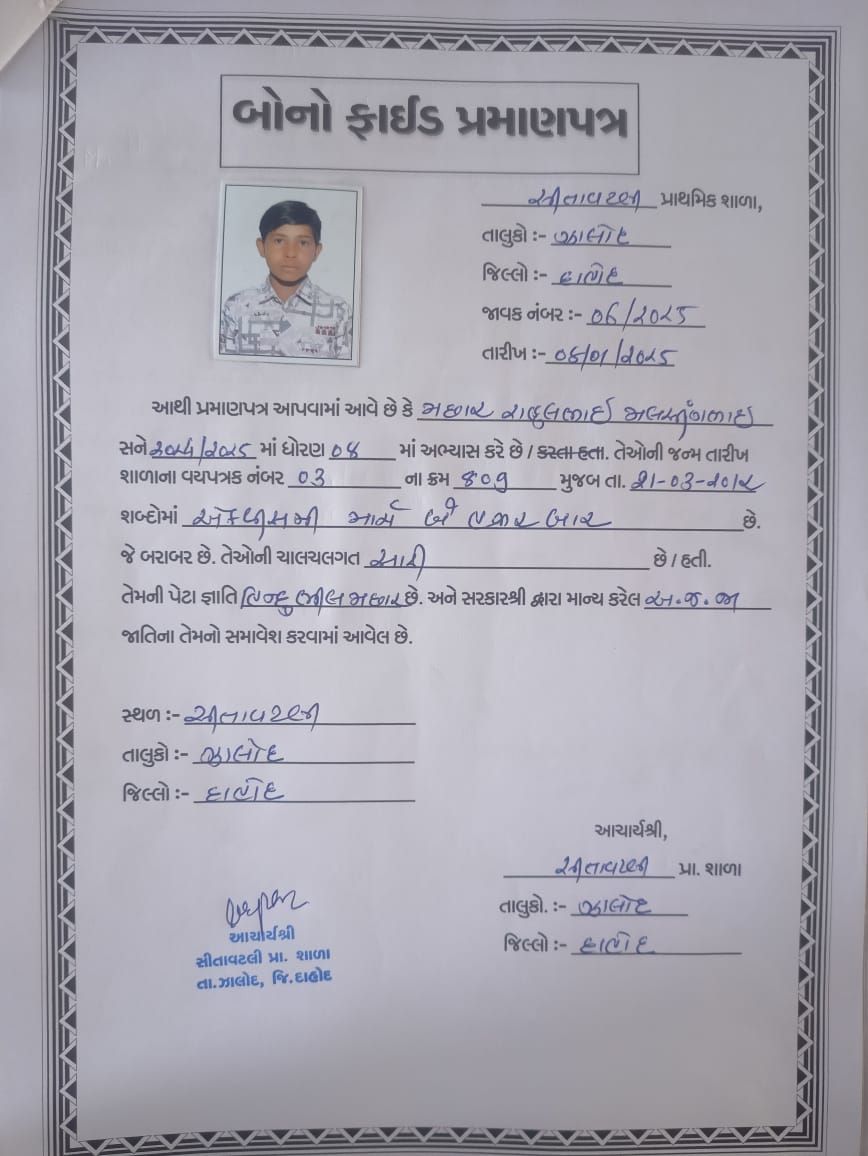 બોનો ફાઈડ પ્રમાણપત્ર
સીતાવટલી પ્રાથમિક શાળા,
તાલુકો :- ઝાલોદ
જિલ્લો :- દાહોદ
જાવક નંબર :- ૦૬/૨૦૨૫
તારીખ :- ૦૬/૦૧/૨૦૨૫
આથી પ્રમાણપત્ર આપવામાં આવે છે કે મછાર રાહુલભાઈ
સને ૨૦૨૪/૨૦૨૫ માં ધોરણ ૦૪ માં અભ્યાસ કરે છે / કરતા હતા. તેઓની જન્મ તારીખ
શાળાના વયપત્રક નંબર ૦૩ ના ક્રમ ૪૦૭ મુજબ તા. ૨૧-૦૩-૨૦૧૨
શબ્દોમાં એકવીસમી માર્ચ બે હજાર બાર છે.
જે બરાબર છે. તેઓની ચાલચલગત સારી છે / હતી.
તેમની પેટા જ્ઞાતિ હિન્દુ ભીલ મછાર છે. અને સરકારશ્રી દ્વારા માન્ય કરેલ અ.જ.જા
જાતિના તેમનો સમાવેશ કરવામાં આવેલ છે.
સ્થળ :- સીતાવટલી
તાલુકો :- ઝાલોદ
જિલ્લો :- દાહોદ
આચાર્યશ્રી,
સીતાવટલી પ્રા. શાળા
તાલુકો. :- ઝાલોદ
જિલ્લો :- દાહોદ
આચાર્યશ્રી
સીતાવટલી પ્રા. શાળા
તા.ઝાલોદ, જિ.દાહોદ